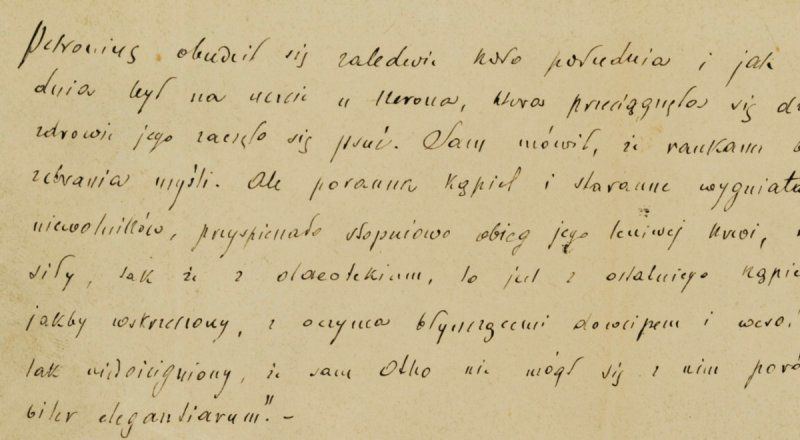 Petroniusz obudził się zaledwie koło południa i jak
dnia był na uczcie u Nerona, która przeciągnęła się d
zdrowie jego zaczęło się psuć. Sam mówił, że rankami b
zebrania myśli. Ale poranna kąpiel i staranne wygniata
niewolników, przyspieszało stopniowo obieg jego leniwej krwi,
siły, tak że z olaeotekium, to jest z ostatniego kąpie
jakby wskrzeszony, z oczyma błyszczącemi dowcipem i weso
tak niedościgniony, że sam Otho nie mógł się z nim poró
biter elegantiarum". –